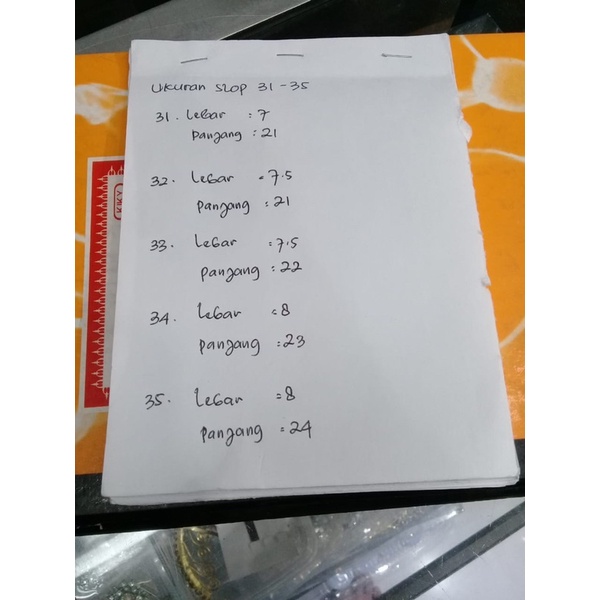 Ukuran slop 31-35
31. Lebar : 7
Panjang : 21
32. Lebar : 7.5
Panjang : 21
33. Lebar : 7.5
Panjang : 22
34. Lebar : 8
Panjang : 23
35. Lebar : 8
Panjang : 24
KIKY